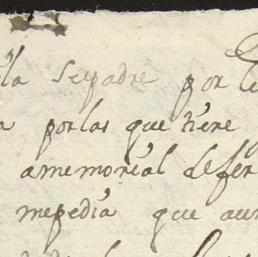 la Supadre por
porlas que tiene
amemorial de fer
me pedia que aun